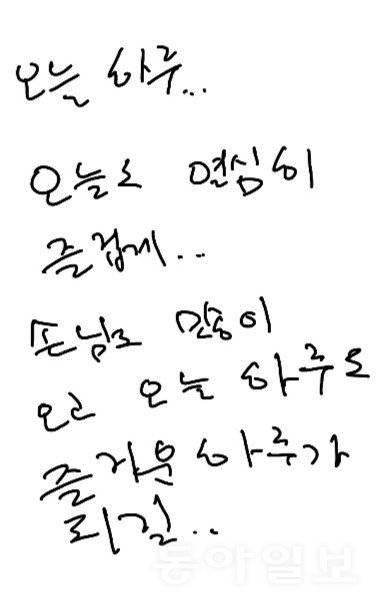 오늘 하루...
오늘도 열심히
즐겁게..
손님도 많이
오고 오늘 하루도
즐거운 하루가
되길..
동아일보